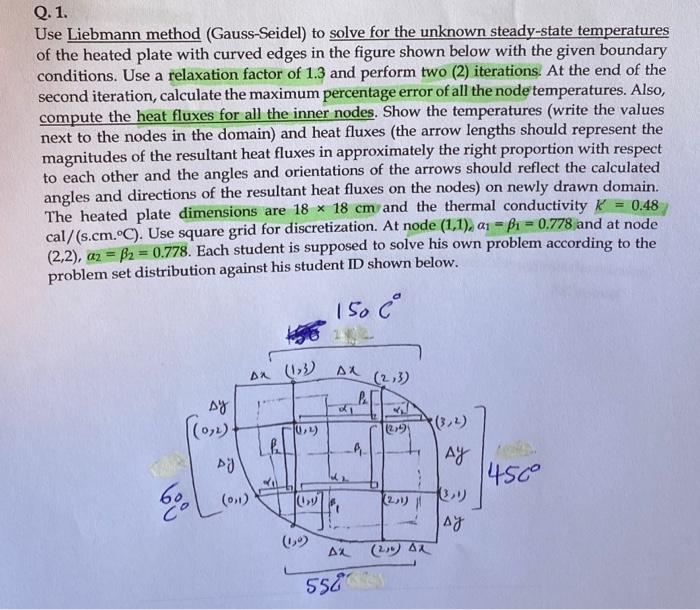 Q. 1.
Use Liebmann method (Gauss-Seidel) to solve for the unknown steady-state temperatures
of the heated plate with curved edges in the figure shown below with the given boundary
conditions. Use a relaxation factor of 1.3 and perform two (2) iterations. At the end of the
second iteration, calculate the maximum percentage error of all the node temperatures. Also,
compute the heat fluxes for all the inner nodes. Show the temperatures (write the values
next to the nodes in the domain) and heat fluxes (the arrow lengths should represent the
magnitudes of the resultant heat fluxes in approximately the right proportion with respect
to each other and the angles and orientations of the arrows should reflect the calculated
angles and directions of the resultant heat fluxes on the nodes) on newly drawn domain.
The heated plate dimensions are 18 × 18 cm and the thermal conductivity K' = 0.48
cal/(s.cm.ºC). Use square grid for discretization. At node (1,1), α1 = β1 = 0.778 and at node
(2,2), α2 = β2 = 0.778. Each student is supposed to solve his own problem according to the
problem set distribution against his student ID shown below.
150 C°
Δx (1,3) Δx (2,3)
Δy β2
α1 α2 (3,2)
(0,2) (1,2) (2,2)
β2 β1 Δy
Δy 45C°
α1 α2
60 C° (0,1) (1,1) β1 (2,1) (3,1)
Δy
(1,0) Δx (2,0) Δx
55C°